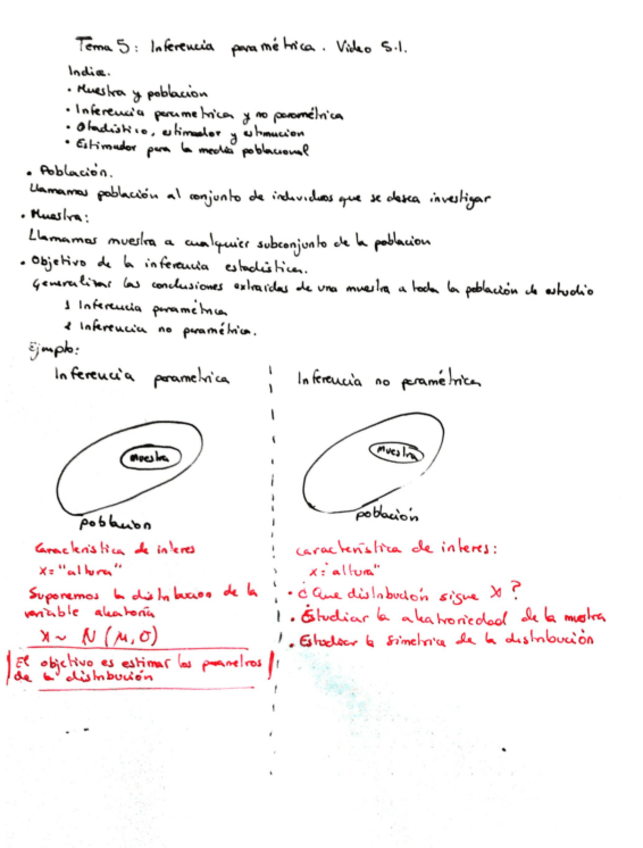 Tema 5: Inferencia paramétrica. Video 5.1.
Indice.
• Muestra y población
• Inferencia parametrica y no paramétrica
• Estadistico, estimador y estimacion
• Estimador para la media poblacional
• Población.
Llamamos población al conjunto de individuos que se desea investigar
• Muestra:
Llamamos muestra a cualquier subconjunto de la poblacion
• Objetivo de la inferencia estadística.
Generalizar las conclusiones extraidas de una muestra a toda la población de estudio
1 Inferencia paramétrica
2 Inferencia no paramétrica.
Ejmplo:
Inferencia parametrica
Muestra
poblacion
Caracteristica de interes
X="altura"
Suponemos la distribucion de la
variable aleatoria
X ~ N(μ, σ)
El objetivo es estimar los parametros
de la distribución
Inferencia no paramétrica
Muestra
población
caracteristica de interes:
X="altura"
• ¿Que distribución sigue X?
• Estudiar la aleatoriedad de la muestra
• Estudiar la simetrica de la distribución